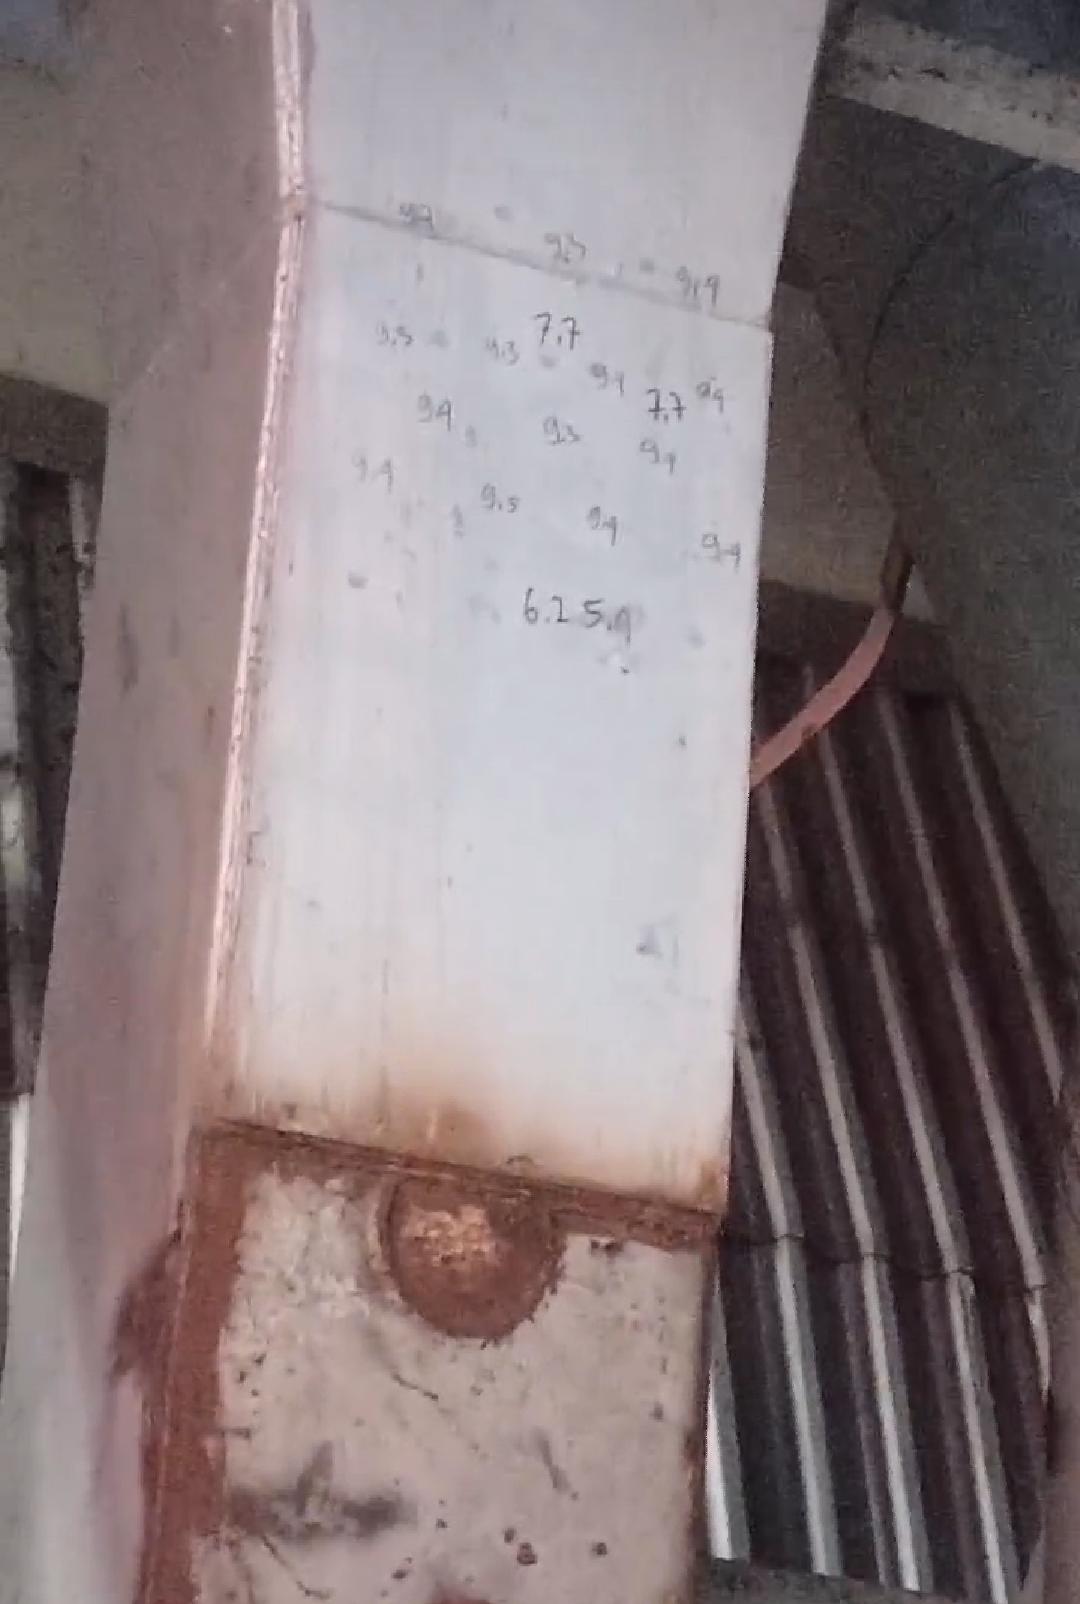 9.3 9.4
7.7
9.5 9.3 9.4 7.7 9.4
9.4 9.3 9.4
9.4 9.5 9.4 9.4
6.2 5.9